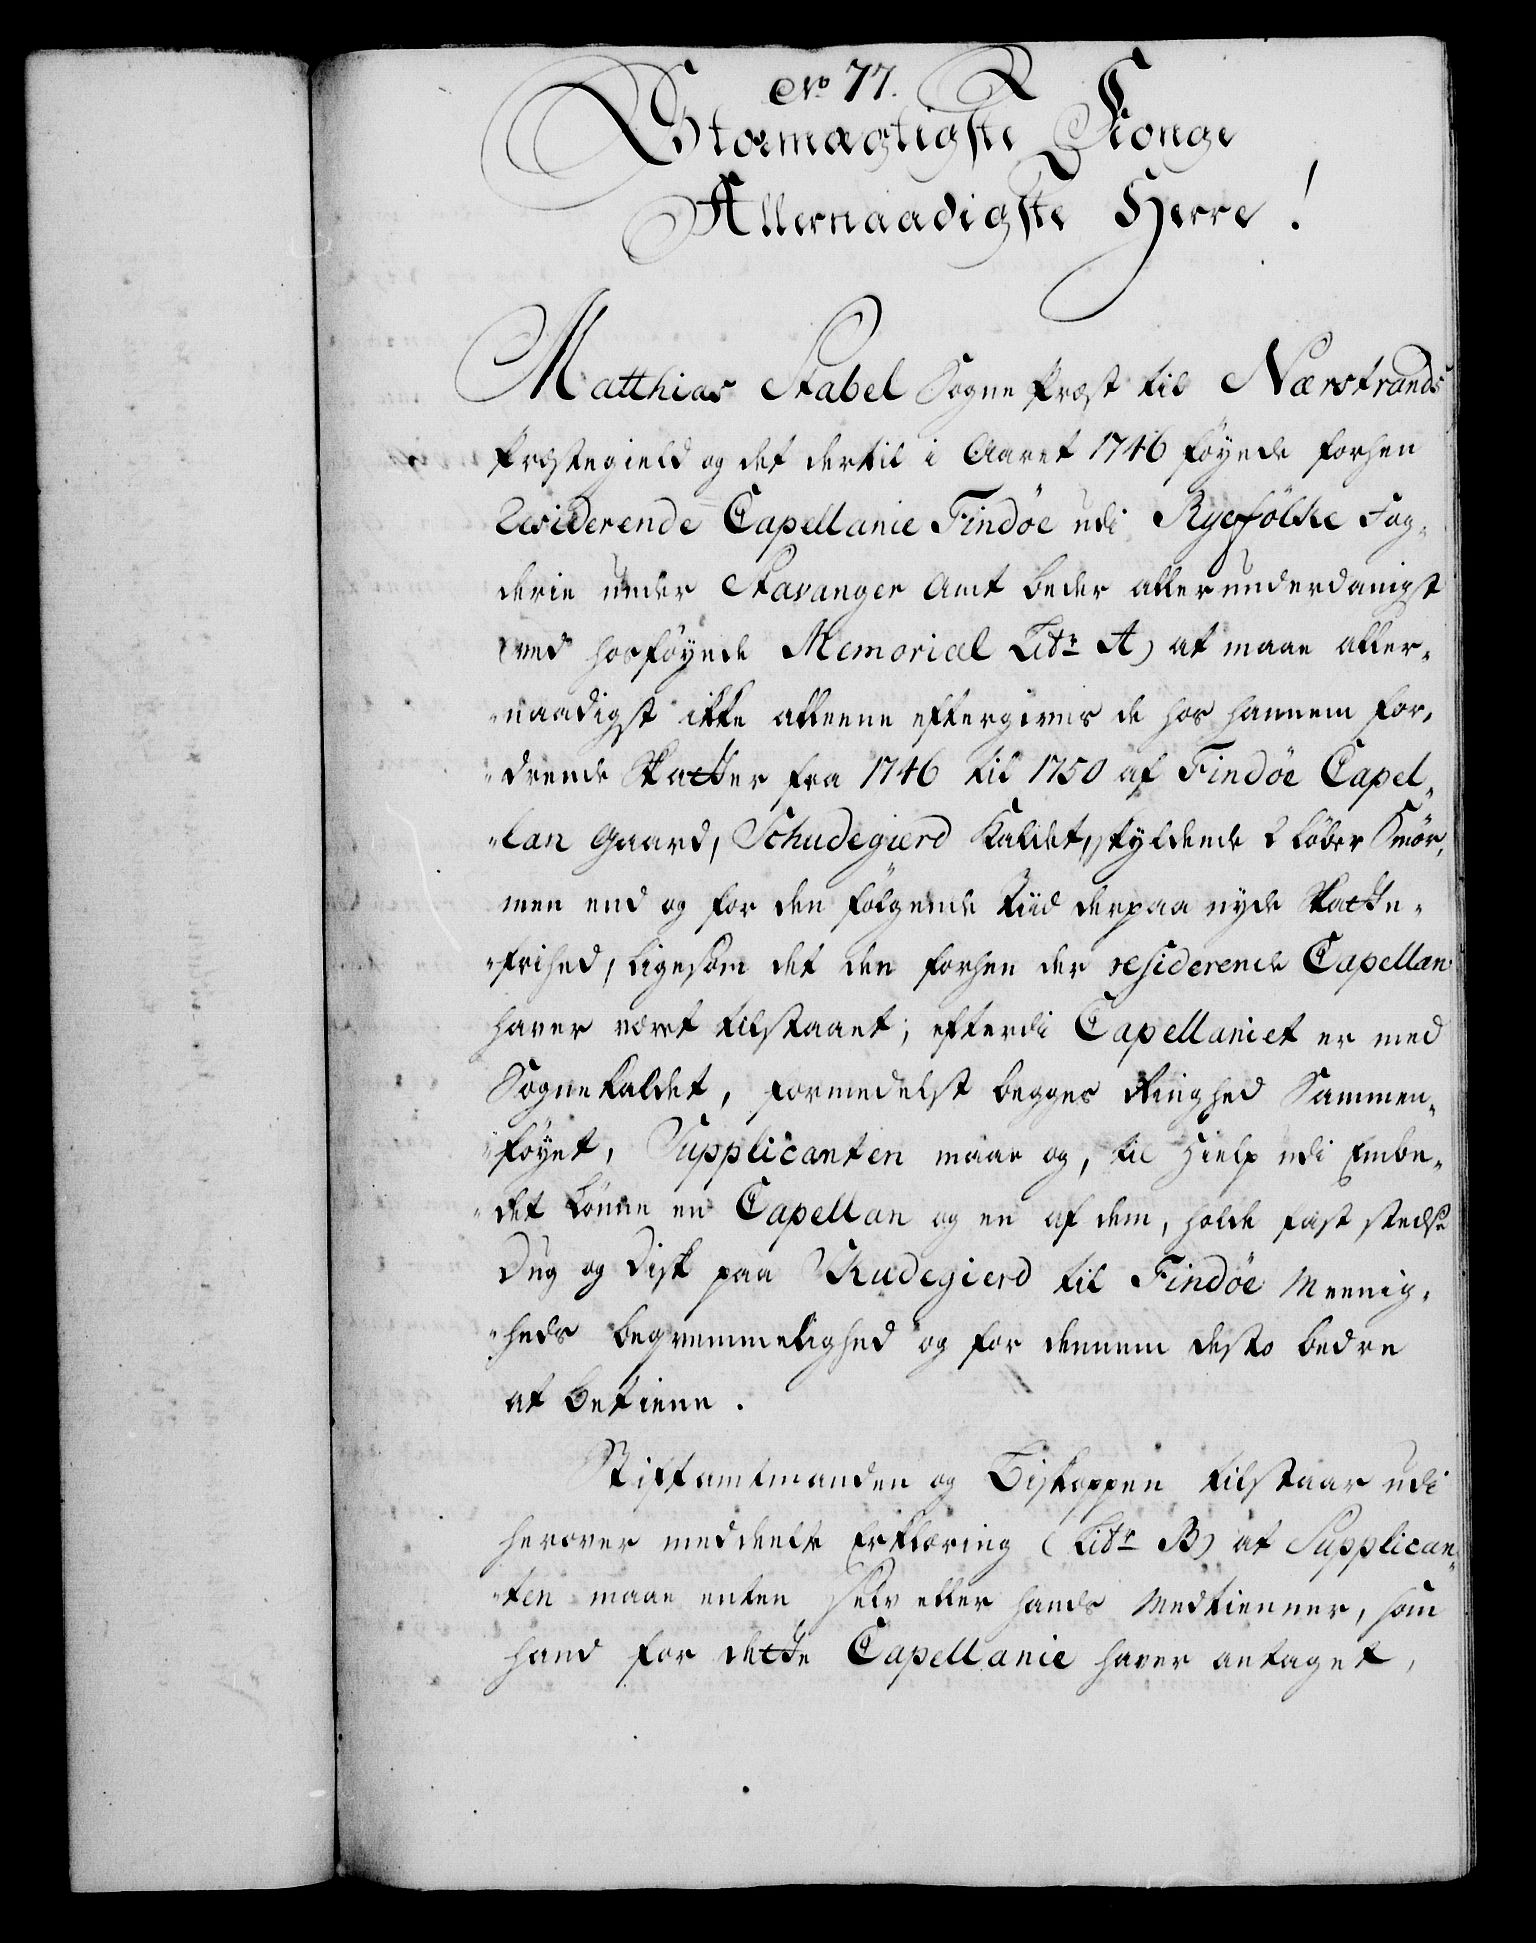 No 77.
Stormægtigste Konge
Allernaadigste Herre!
Matthias Stabel Sogne Præst til Nærstrands
Præstegield og det dertil i Aaret 1746 föyede forhen
Residerende Capellanie Findöe udi Ryefölke Fog-
derie under Stavanger Amt beder allerunderdanigst
ved hosföyede Memorial Litr A) at maae aller-
naadigst ikke alleene eftergives de hos hannem for-
drende Skatter fra 1746 til 1750 af Findöe Capel-
lan Gaard, Schudegierd kaldet, skyldende 2 Löber Smör,
men end og for den fölgende Tiid derpaa nyde Skatte-
frihed, ligesom det den forhen der residerende Capellan
haver været tilstaaet; efterdi Capellaniet er med
Sognekaldet, formedelst begges Ringhed Sammen-
föyet, Supplicanten maae og, til Hielp udi Embe-
det lönne en Capellan og en af dem, holde fast stedse
Dug og Disk paa Skudegierd til Findöe Meenig-
heds begvemmelighed og for dennem desto bedre
at betiene.
Stiftamtmanden og Biskoppen tilstaar udi
herover meddeelte Erklæring (Litr B) at Supplican-
ten maae enten Selv eller hands Medtienner, som
hand for dette Capellanie haver antaget,